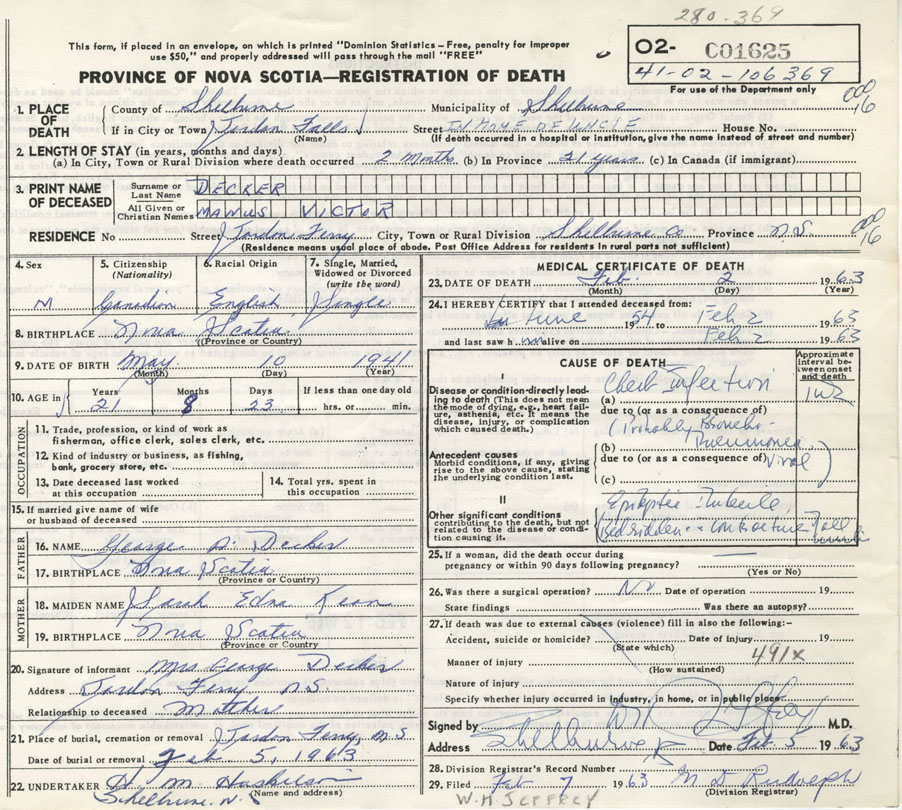 280-369
This form, if placed in an envelope, on which is printed "Dominion Statistics – Free, penalty for improper
use $50," and properly addressed will pass through the mail "FREE"
O2- C01625
41-02-106369
For use of the Department only
PROVINCE OF NOVA SCOTIA—REGISTRATION OF DEATH
1. PLACE OF DEATH
County of Shelburne Municipality of Shelburne
If in City or Town Jordan Falls Street IN HOME OF UNCLE House No.
(Name) (If death occurred in a hospital or institution, give the name instead of street and number)
2. LENGTH OF STAY (in years, months and days)
(a) In City, Town or Rural Division where death occurred 2 months (b) In Province 21 years (c) In Canada (if immigrant)
3. PRINT NAME OF DECEASED
Surname or Last Name DECKER
All Given or Christian Names MANUS, VICTOR
RESIDENCE No Street Jordan Ferry City, Town or Rural Division Shelburne Co Province N.S.
(Residence means usual place of abode. Post Office Address for residents in rural parts not sufficient)
4. Sex
M
5. Citizenship
(Nationality)
Canadian
6. Racial Origin
English
7. Single, Married,
Widowed or Divorced
(write the word)
Single
8. BIRTHPLACE Nova Scotia
(Province or Country)
9. DATE OF BIRTH May 10 1941
(Month) (Day) (Year)
10. AGE in
Years Months Days If less than one day old
21 8 23 hrs. or min.
OCCUPATION
11. Trade, profession, or kind of work as
fisherman, office clerk, sales clerk, etc.
12. Kind of industry or business, as fishing,
bank, grocery store, etc.
13. Date deceased last worked
at this occupation
14. Total yrs. spent in
this occupation
15. If married give name of wife
or husband of deceased
FATHER
16. NAME George Decker
17. BIRTHPLACE Nova Scotia
(Province or Country)
MOTHER
18. MAIDEN NAME Sarah Edna Kean
19. BIRTHPLACE Nova Scotia
(Province or Country
20. Signature of informant Mrs George Decker
Address Jordon Ferry N.S.
Relationship to deceased Mother
21. Place of burial, cremation or removal Jordon Ferry, N.S
Date of burial or removal Feb 5, 1963
22. UNDERTAKER H. M. Huskilson
(Name and address)
Shelburne N.S
MEDICAL CERTIFICATE OF DEATH
23. DATE OF DEATH Feb. 2 1963
(Month) (Day) (Year)
24. I HEREBY CERTIFY that I attended deceased from:
June 1954 to Feb 2 1963
and last saw h im alive on Feb 2 1963
CAUSE OF DEATH
Approximate
interval between
onset
and death
I
Disease or condition directly leading
to death (This does not mean
the mode of dying, e.g., heart failure,
asthenia, etc. It means the
disease, injury, or complication
which caused death.)
(a) Chest Infection
due to (or as a consequence of)
1 wk
Antecedent causes
Morbid conditions, if any, giving
rise to the above cause, stating
the underlying condition last.
(Probably Broncho-
(b) Pneumonia
due to (or as a consequence of) Viral)
(c)
II
Other significant conditions
contributing to the death, but not
related to the disease or condition
causing it.
Epileptic Imbecile,
Bedridden
25. If a woman, did the death occur during
pregnancy or within 90 days following pregnancy?
(Yes or No)
26. Was there a surgical operation? No Date of operation 19
State findings Was there an autopsy?
27. If death was due to external causes (violence) fill in also the following:-
Accident, suicide or homicide? Date of injury 19
(State which)
491X
Manner of injury
(How sustained)
Nature of injury
Specify whether injury occurred in industry, in home, or in public place
Signed by M.D.
Address Shelburne Date Feb 5 1963
28. Division Registrar's Record Number
29. Filed Feb 7 1963 N D Rudolph
(Division Registrar)
W.H JEFFREY